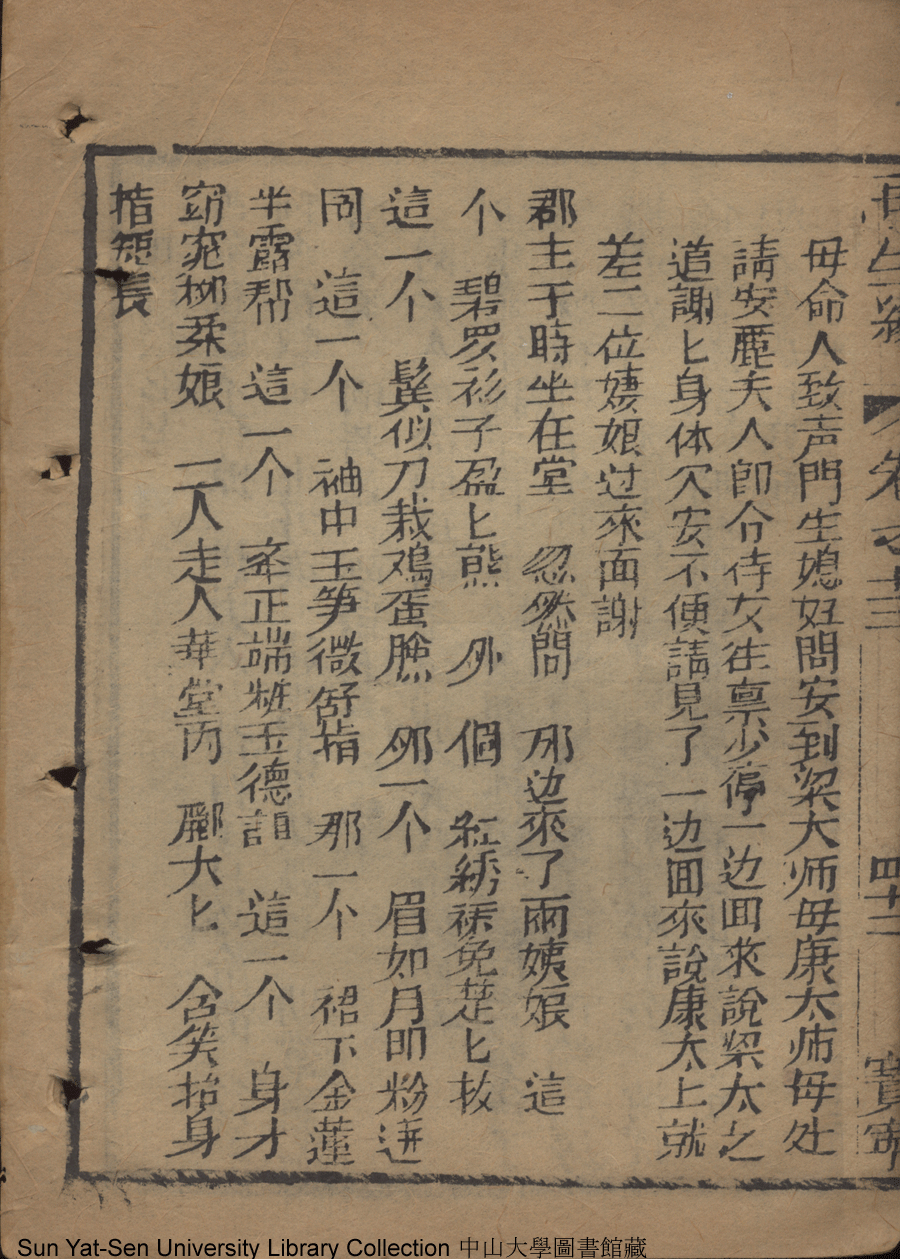 再生緣 卷之十三 四十二 寶寧
母命人致声門生媳妇問安到梁大师母康太师母处
請安麗夫人即令侍女往禀少停一边囬來說梁太之
道謝匕身体欠安不便請見了一边囬來說康太上就
差二位姨娘过來面謝
郡主于時坐在堂 忽然間 那边來了兩姨娘 這
个 碧罗衫子盈匕態 那 個 紅綉裙兒楚匕妝
這一个 鬂似刀裁鳮蛋臉 那一个 眉如月印粉迸
同 這一个 袖中玉笋微舒指 那一个 裙下金蓮
半露帮 這一个 牽正端粧玉德韻 這一个 身才
窈窕柳柔娘 二人走入華堂內 酈大匕 含笑抬身
揩短長
Sun Yat-Sen University Library Collection 中山大學圖書館藏